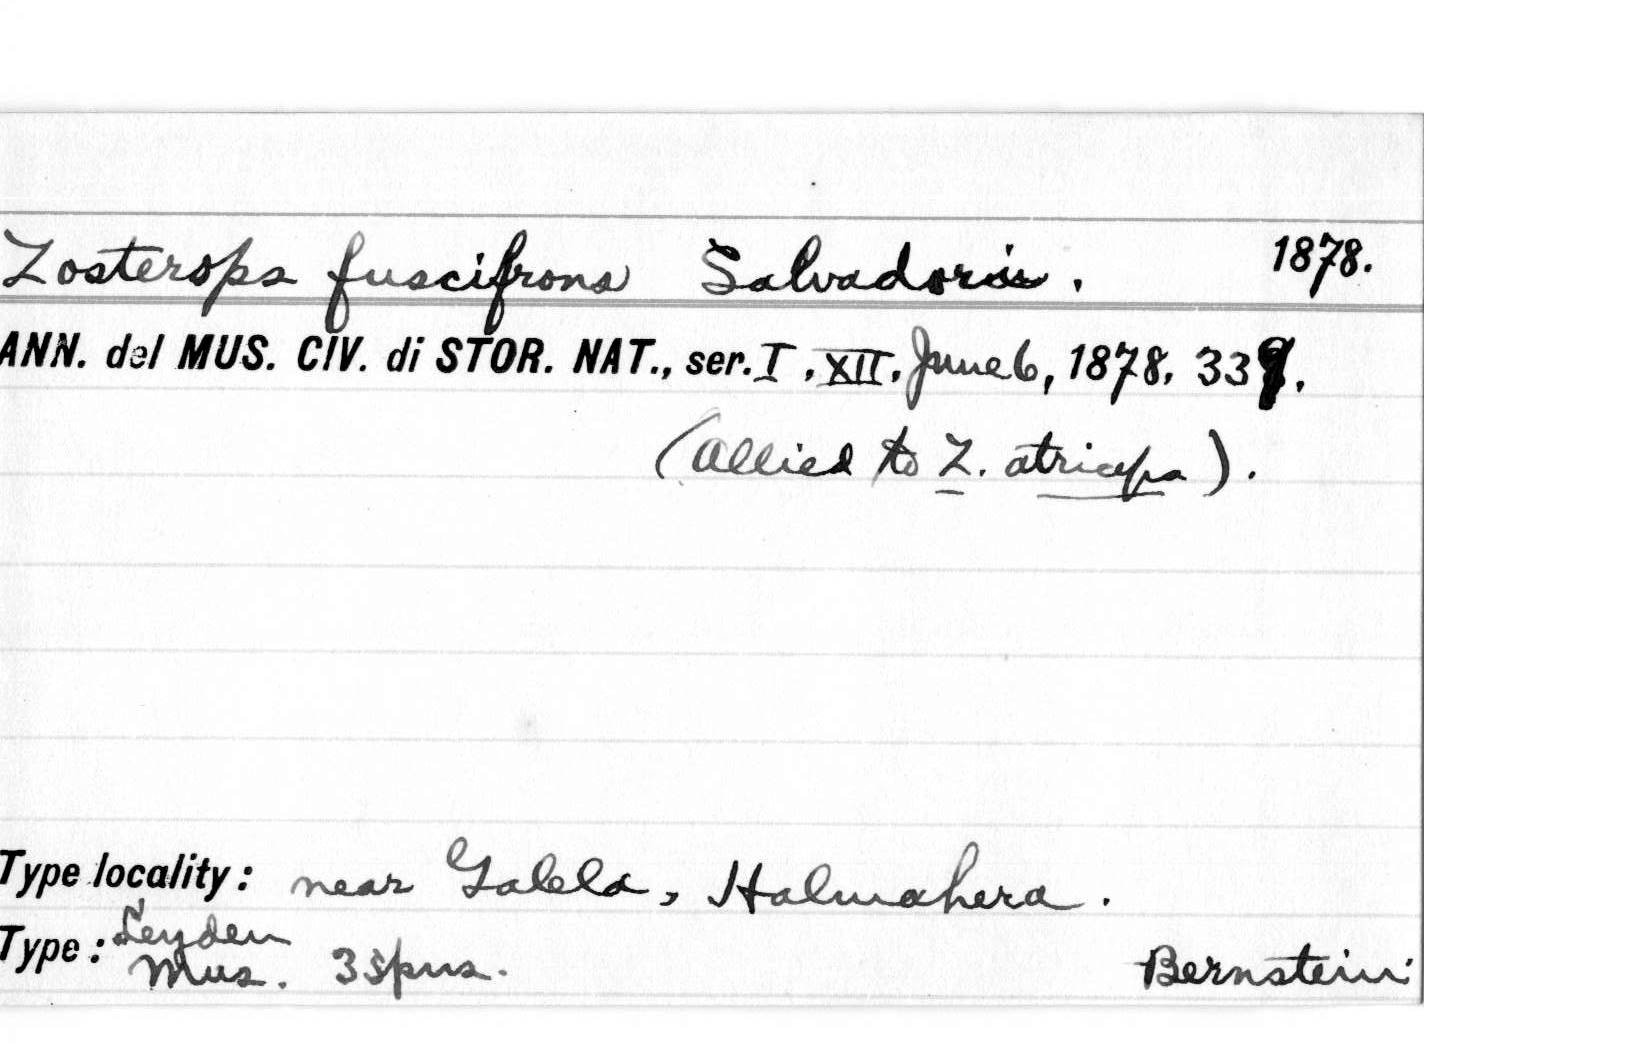 Zosterops fuscifrons Salvadori. 1878.
ANN. del MUS. CIV. di STOR. NAT., ser. I, XII, June 6, 1878, 339.
(Allied to Z. atriceps).
Type locality: near Galela, Halmahera.
Type: Leyden
Mus. 3 spns. Bernstein